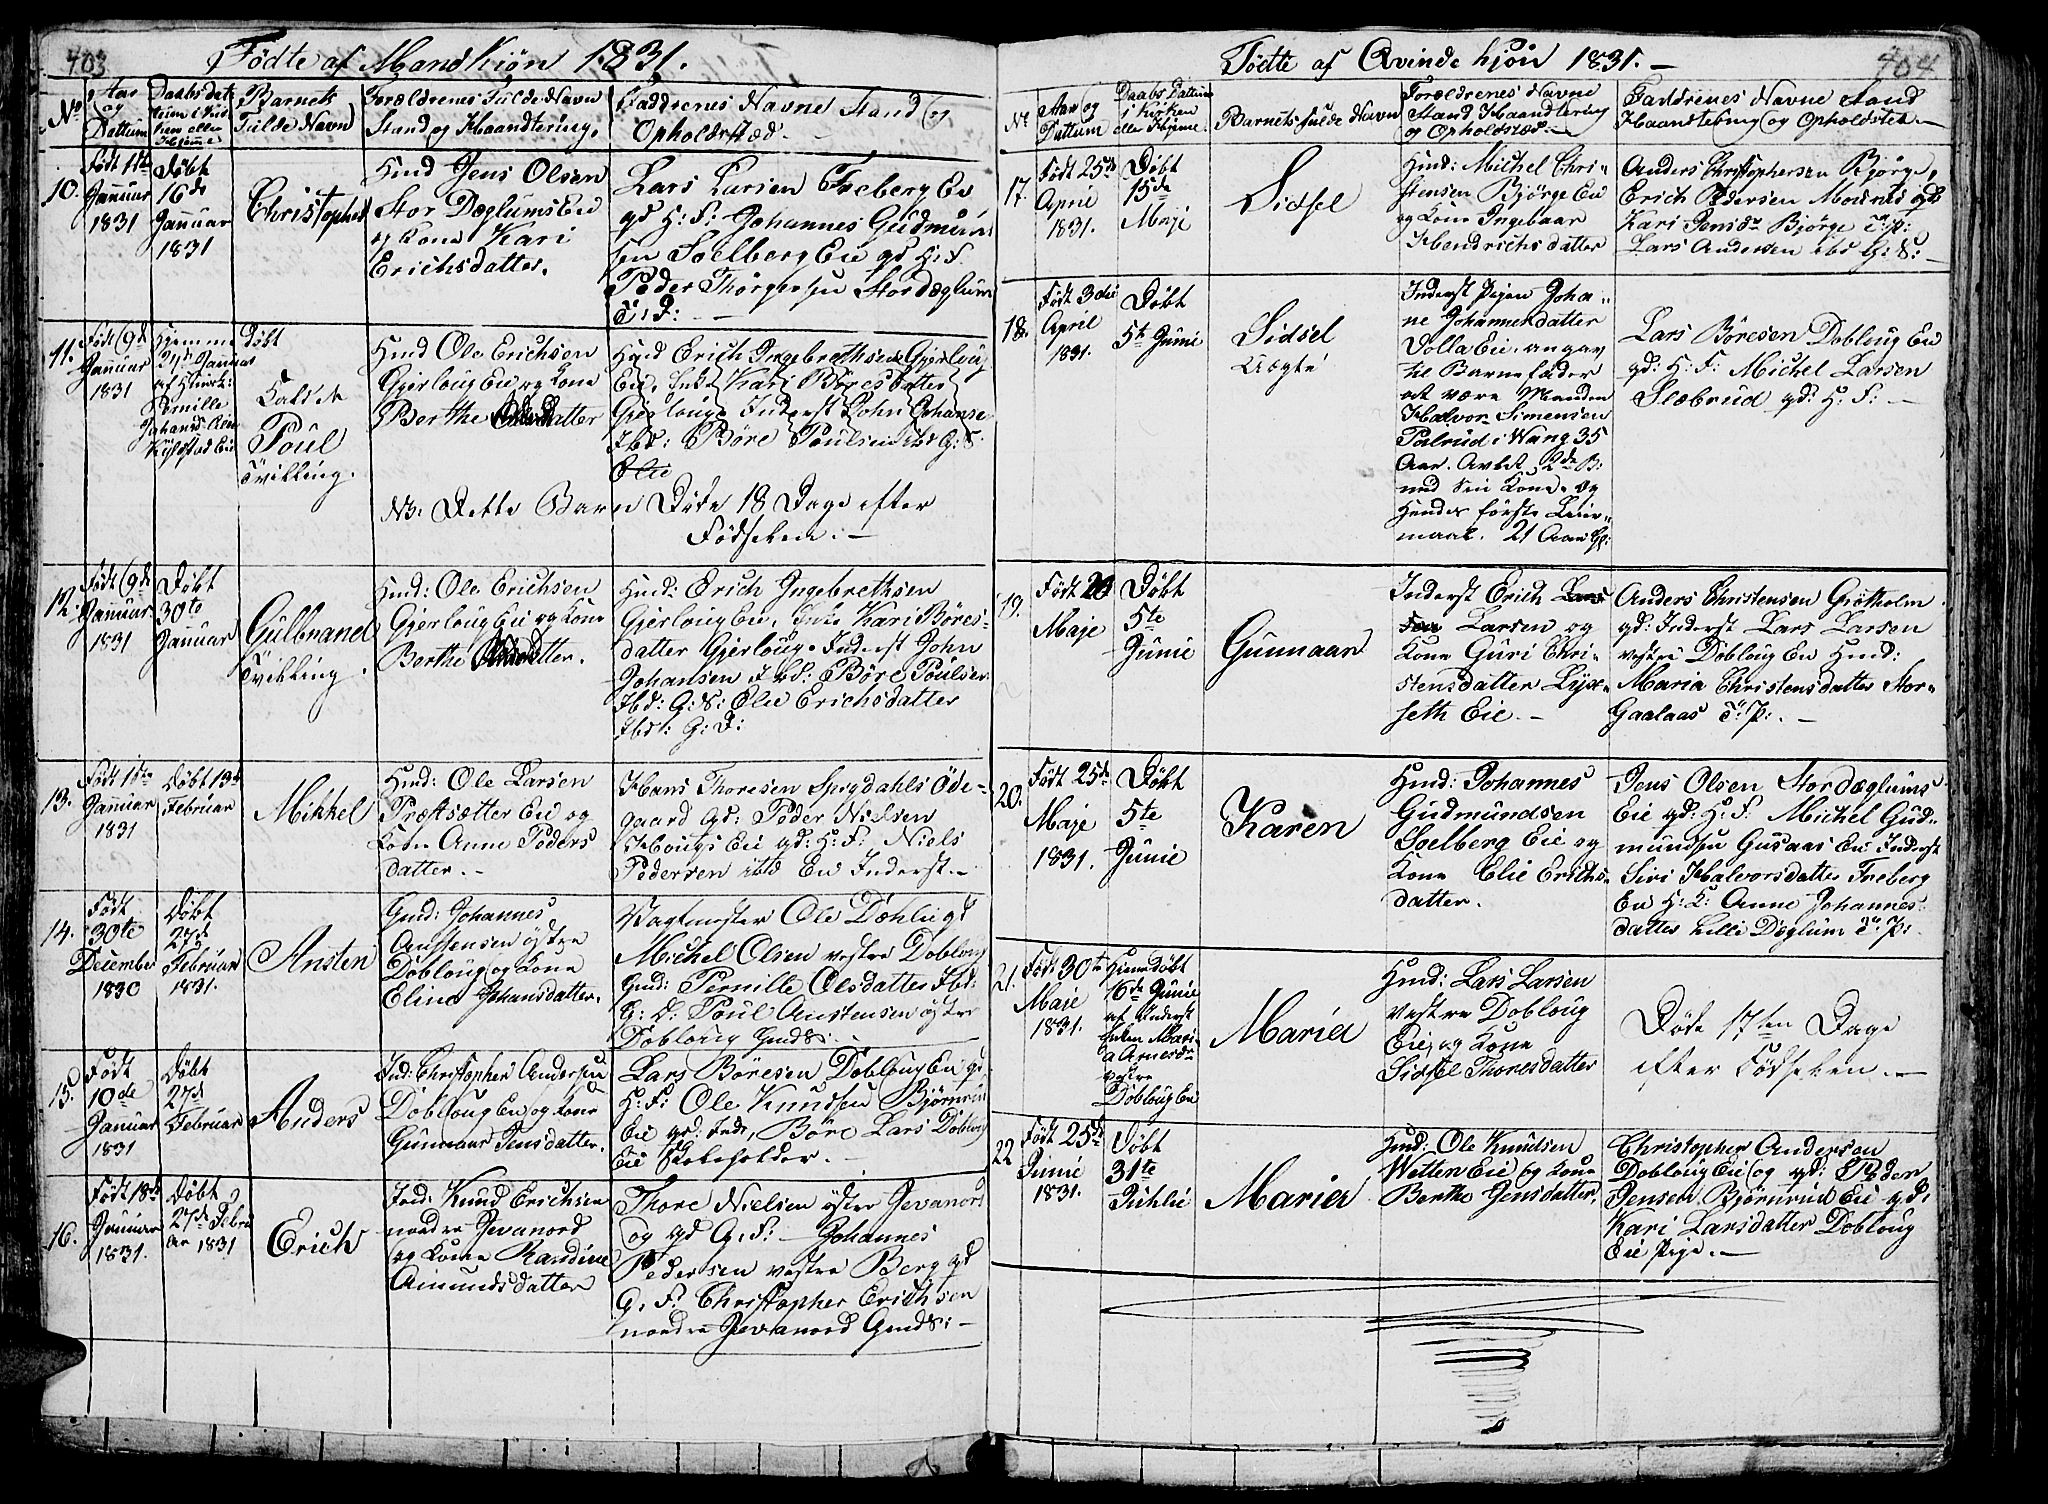 403
Fødte af Mandkiøn 1831.
No
Aar og Dattum
Daabs dat
Barnets Fulde Navn
Forældrenes Fulde Navn
Stand og Haandtering.
Faddrenes Navne Stand og
Opholdsstæd.
10.
Født 1ste
Januar
1831
Døbt
16de
Januar
1831
Christopher
Hmd Jens Olsen
Stor Dæglums Eie
og Kone Kari
Erichsdatter.
Lars Larsen Freberg Eie
gd H: F: Johannes Gudmund
sen Soelberg Eie gd H: F.
Peder Thorgersen Stordæglum
T: D:
11.
Født 9de
Januar
1831
Hjemme Døbt
21de Januar
Pernille
Kaldet
Poul
Tvilling.
Hmd Ole Erichsen
Gjerloug Eie og Kone
Berthe
Hmd Erich Ingebrethsen Gjerloug
Eie, Kari Børesdatter
Gjerloug Inderst John Johanse
Ibd: Børe Poulsen Ibd G: S.
NB: Dette Barn Døde 18 Dage efter
Fødselen. —
12.
Født 9de
Januar
1831
Døbt
30te
Januar
Gulbrand
Tvilling.
Hmd: Ole Erichsen
Gjerloug Eie og Kone
Berthe
Hmd: Erich Ingebrethsen
Gjerloug Eie, Kari Børes-
datter Gjerloug. Inderst John
Johansen Ibd: Børe Poulsen
Ibd: G: S: Elie Erichsdatter
Ibd: G: D:
13.
Født 1ste
Januar
1831
Døbt 13de
Februar
Mikkel
Hmd: Ole Larsen
Præstsætter Eie og
Kone Anne Peders
datter. —
Hans Thoresen Spigdahls Øde-
gaard gd: Peder Nielsen
Hougs Eie gd: H: F: Niels
Pedersen ibid Eie Inderst. —
14.
Født
30te
December
1830
Døbt
27de
Februar
1831.
Ansten
Gmd: Johannes
Anstensen østre
Dobloug og Kone
Eline Johansdatter.
Vagtmester Ole Døhli gd
Michel Olsen vestre Dobloug
Gmd: Pernille Olsdatter Ibd:
G: D: Poul Anstensen østre
Dobloug GmdS:
15.
Født
10de
Januar
1831
Døbt
27de
Februar
Anders
Ind: Christopher Andersen
Dobloug Eie og Kone
Gunnaar Jensdatter.
Lars Børesen Dobloug Eie gd
H: F: Ole Knudsen Bjørnrud
Eie gd: Ind, Børe Lars Dobloug
Eie Skoleholder. —
16.
Født 18de
Januar
1831.
Døbt
27de Febru
ar 1831
Erich
Ind: Knud Erichsen
nordre Jevanord
og Kone Randine
Amundsdatter
Thore Nielsen østre Jevanord
og gd G: F: — Johannes
Pedersen vestre Berg gd
G: F. Christopher Erichsen
nordre Jevanord GmdS: —
404
Fødte af Qvinde kjøn 1831. —
No
Aar og Dattum
Daabs Dattum
i Kirken
eller Hjeme.
Barnets fulde Navn
Forældrenes Navne
Stand Haandtering
og Opholdstæd
Faddrenes Navne Stand
Haandtering og Opholdsted. —
17.
Født 25de
April
1831.
Døbt
15de
Maje
Sidsel
Hmd: Michel Chri-
stensen Bjørge Eie
og Kone Ingebaar
Hendrichsdatter
Anders Christophersen Bjørge,
Erich Pedersen
Kari Jensdr Bjørge T: P:
Lars Andersen ibd G: S: —
18.
Født 3die
April
1831.
Døbt
5te Junie
Sidsel
Uægte
Inderst Pigen Joha-
ne Johannesdatter
Dolla Eie, angav
til Barnefader
at være Manden
Halvor Simensen
Palrud i Wang 35
Aar. Avlet 2de B:
med sin Kone og
Hendes første Leier-
maal. 21 Aar Gl:
Lars Børesen Dobloug Eie
gd: H: F: Michel Larsen
Slæbrud gd: H. F: —
19.
Født 20
Maje
Døbt
5te
Junie
Gunnaar
Inderst Erich
Larsen og
Kone Guri Chri-
stensdatter Lyse-
seth Eie. —
Anders Christensen Grøtholm
gd: Inderst Lars Larsen
vestre Dobloug Eie Hmd:
Maria Christensdatter Stor-
Gaalaas T: P: —
20.
Født 25de
Maje
1831.
Døbt
5te
Junie
Karen
Hmd: Johannes
Gudmundsen
Soelberg Eie og
Kone Elie Erichs-
datter.
Jens Olsen Stordæglums
Eie gd: H: F: Michel Gud-
mundsen Gusaas Eie Inderst
Siri Halvorsdatter Freberg
Eie H: K: Anne Johannes-
datter Lille Dæglum T: P:
21.
Født 30te
Maie
1831.
Hjemdøbt
16de Junie
af Inderst
Enken Mari-
a Arnesdr
vestre
Dobloug Eie
Maria
Hmd: Lars Larsen
vestre Dobloug
Eie, og Kone
Sidsel Thoresdatter
Døde 17ten Dage
efter Fødselen. —
22
Født 25de
Junie
1831.
Døbt
31te
Juhlie
Maria
Hmd: Ole Knudsen
Wetten Eie og Kone
Berthe Jensdatter,
Christopher Andersen
Dobloug Eie og gd: Peder
Jensen Bjørnrud Eie gd.
Kari Larsdatter Dobloug
Eie Pige. —